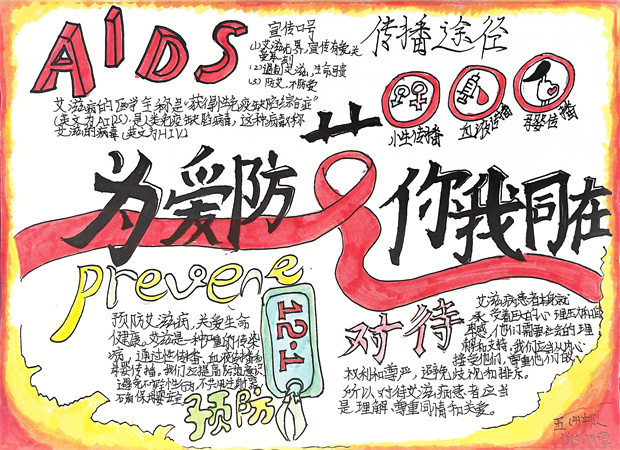 AIDS
宣传口号
(1)艾滋无界,宣传有爱,关
爱每一刻
(2)遏制艾滋,生命导读
(3)防艾,不防爱
传播途径
性传播
血液传播
母婴传播
艾滋病的医学全称是"获得性免疫缺陷综合症"
(英文为AIDS),是人类免疫缺陷病毒,这种病毒称
艾滋的病毒(英文为HIV)
为爱防艾 你我同在
prevene
12·1
预防艾滋病,关爱生命
健康,艾滋是一种严重的传染
病,通过性传播、血液传播和
母婴传播。我们应提高防范意识
避免不洁性行为,不共用注射器
预防
对待
艾滋病患者
承受着巨大的心理压力和自
卑感,他们需要社会的理
解和支持,我们应当从内心
接受他们,尊重他们的
权利和尊严,避免歧视和排斥。
所以对待艾滋病患者应当
是理解、尊重、同情和关爱。